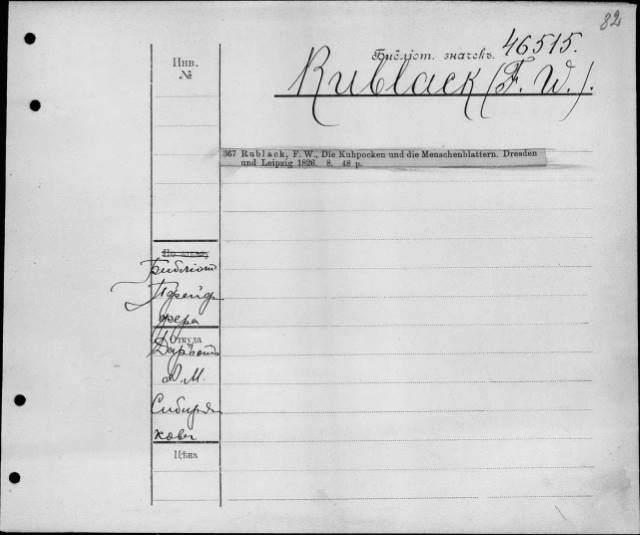 82
Библіот. значекъ. 46515.
Инв.
№
Rublack (F. W.).
367 Rublack, F. W., Die Kuhpocken und die Menschenblattern. Dresden
und Leipzig 1826. 8. 48 p.
Библіот
Пфейф
фера
Откуда
Даръ
А. М.
Сибиря
кова
Цѣна